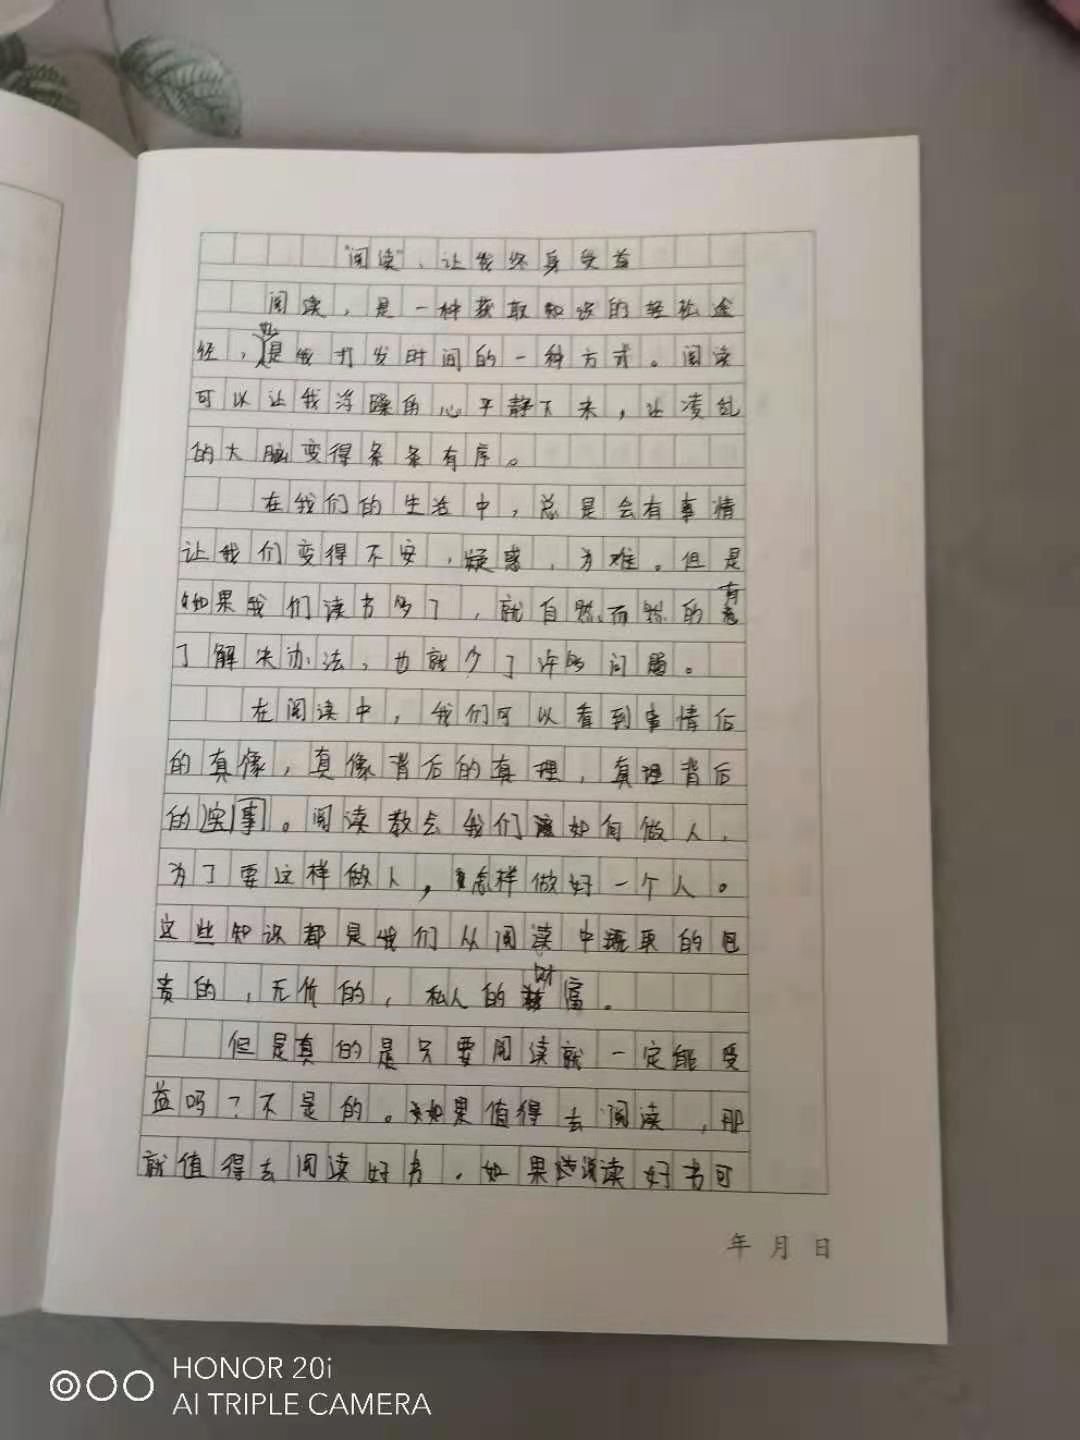 "阅读",让我终身受益
阅读,是一种获取知识的轻松途
径,也是我打发时间的一种方式。阅读
可以让我浮躁的心平静下来,让凌乱
的大脑变得条条有序。
在我们的生活中,总是会有事情
让我们变得不安,疑惑,为难。但是
如果我们读书多了,就自然而然的有
了解决办法,也就少了许多问题。
在阅读中,我们可以看到事情后
的真像,真像背后的真理,真理背后
的实事。阅读教会我们该如何做人,
为了要这样做人,怎样做好一个人。
这些知识都是我们从阅读中 取的
贵的,无价的,私人的财富。
但是真的是只要阅读就一定能受
益吗?不是的。如果值得去阅读,那
就值得去阅读好书。如果 读好书可
年 月 日
HONOR 20i
AI TRIPLE CAMERA